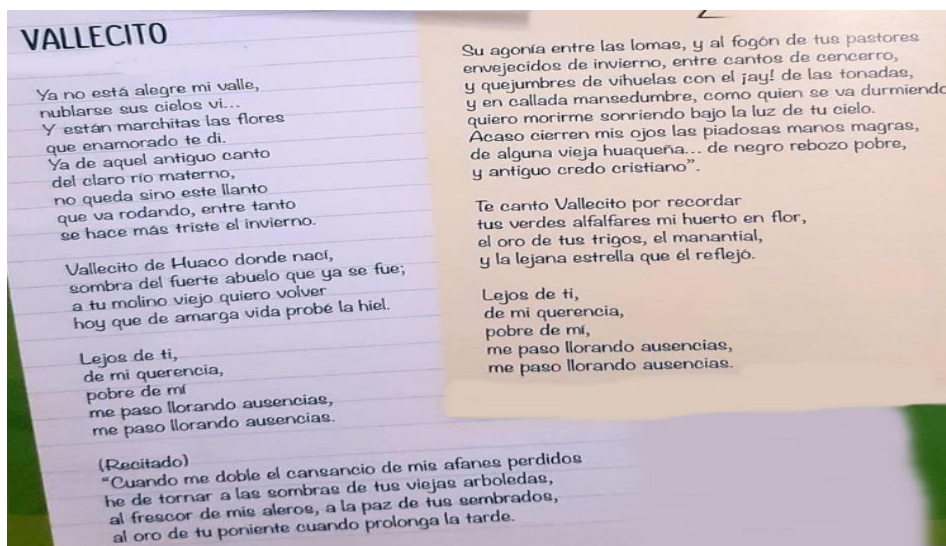 VALLECITO
Ya no está alegre mi valle,
nublarse sus cielos vi...
Y están marchitas las flores
que enamorado te di.
Ya de aquel antiguo canto
del claro río materno,
no queda sino este llanto
que va rodando, entre tanto
se hace más triste el invierno.
Vallecito de Huaco donde nací,
sombra del fuerte abuelo que ya se fue;
a tu molino viejo quiero volver
hoy que de amarga vida probé la hiel.
Lejos de ti,
de mi querencia,
pobre de mí
me paso llorando ausencias,
me paso llorando ausencias.
(Recitado)
"Cuando me doble el cansancio de mis afanes perdidos
he de tornar a las sombras de tus viejas arboledas,
al frescor de mis aleros, a la paz de tus sembrados,
al oro de tu poniente cuando prolonga la tarde.
Su agonía entre las lomas, y al fogón de tus pastores
envejecidos de invierno, entre cantos de cencerro,
y quejumbres de vihuelas con el ¡ay! de las tonadas,
y en callada mansedumbre, como quien se va durmiendo
quiero morirme sonriendo bajo la luz de tu cielo.
Acaso cierren mis ojos las piadosas manos magras,
de alguna vieja huaqueña... de negro rebozo pobre,
y antiguo credo cristiano".
Te canto Vallecito por recordar
tus verdes alfalfares mi huerto en flor,
el oro de tus trigos, el manantial,
y la lejana estrella que él reflejó.
Lejos de ti,
de mi querencia,
pobre de mí,
me paso llorando ausencias,
me paso llorando ausencias.